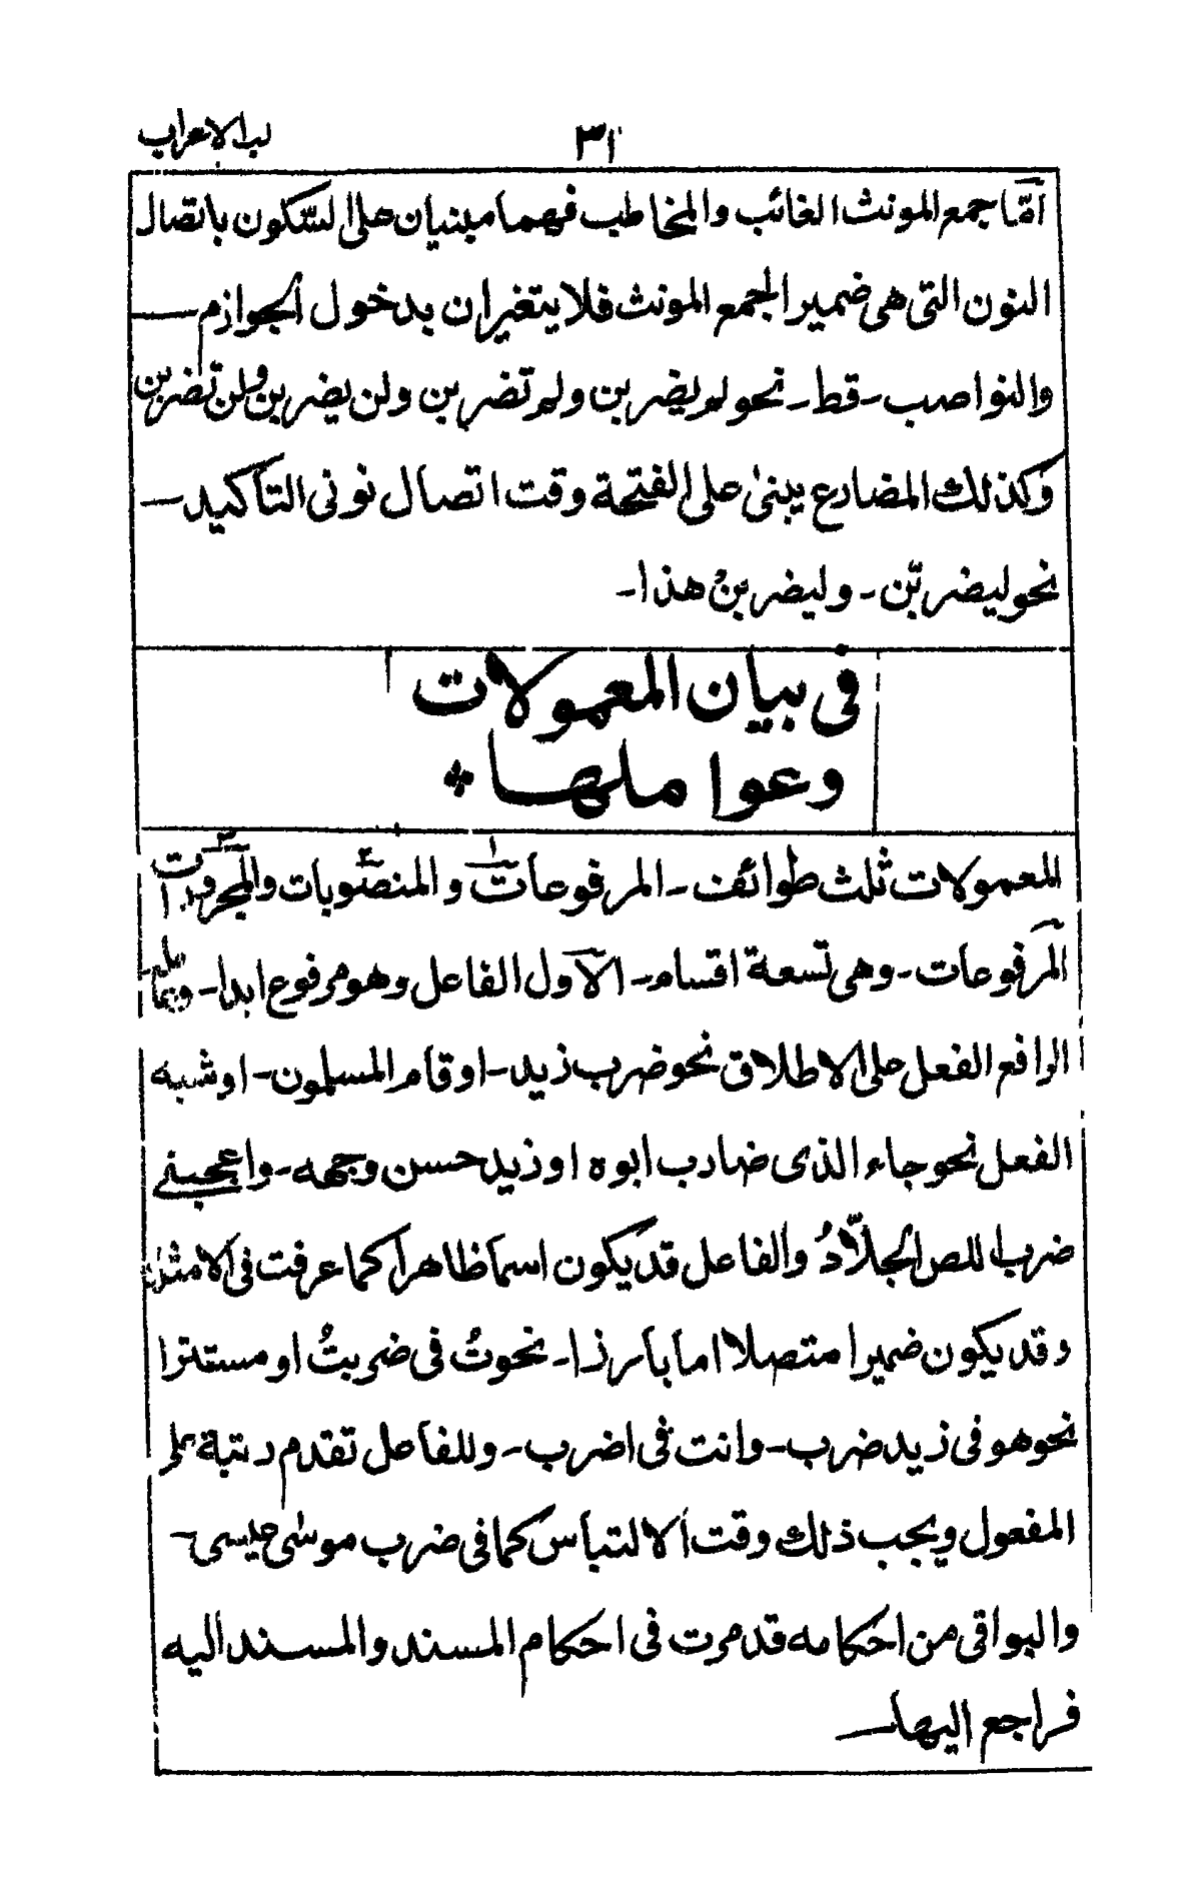 لب الاعراب
٣١
امّا جمع المونث الغائب والمخاطب فهما مبنيان على السّكون باتصال
النون التى هى ضمير الجمع المونث فلا يتغيران بدخول الجوازم —
والنواصب - قط - نحو لم يضربن ولم تضربن ولن يضربن ولن تضربن
وكذلك المضارع يبنىٰ على الفتحة وقت اتصال نونى التاكيد —
نحو ليضربّن - وليضربنْ هذا -
فى بيان المعمولات
وعواملها *
المعمولات ثلث طوائف - المرفوعات١ و المنصوبات٢ والمجرورات٣
المرفوعات - وهى تسعة اقسام - الاول الفاعل وهو مرفوع ابدا -
الرافع الفعل على الاطلاق نحو ضرب زيد - او قام المسلمون - او شبه
الفعل نحو جاء الذى ضارب ابوه او زيد حسن وجهه - واعجبنے
ضرب اللص الجلّادُ والفاعل قد يكون اسما ظاهرا كما عرفت فى الامثلة
وقد يكون ضميرا متصلا اما بارزا - نحو تُ فى ضربتُ او مستترا
نحو هو فى زيد ضرب - وانت فى اضرب - وللفاعل تقدم رتبة على
المفعول ويجب ذلك وقت الالتباس كما فى ضرب موسىٰ عيسى -
والبواقى من احكامه قد مرت فى احكام المسند والمسند اليه
فراجع اليها —